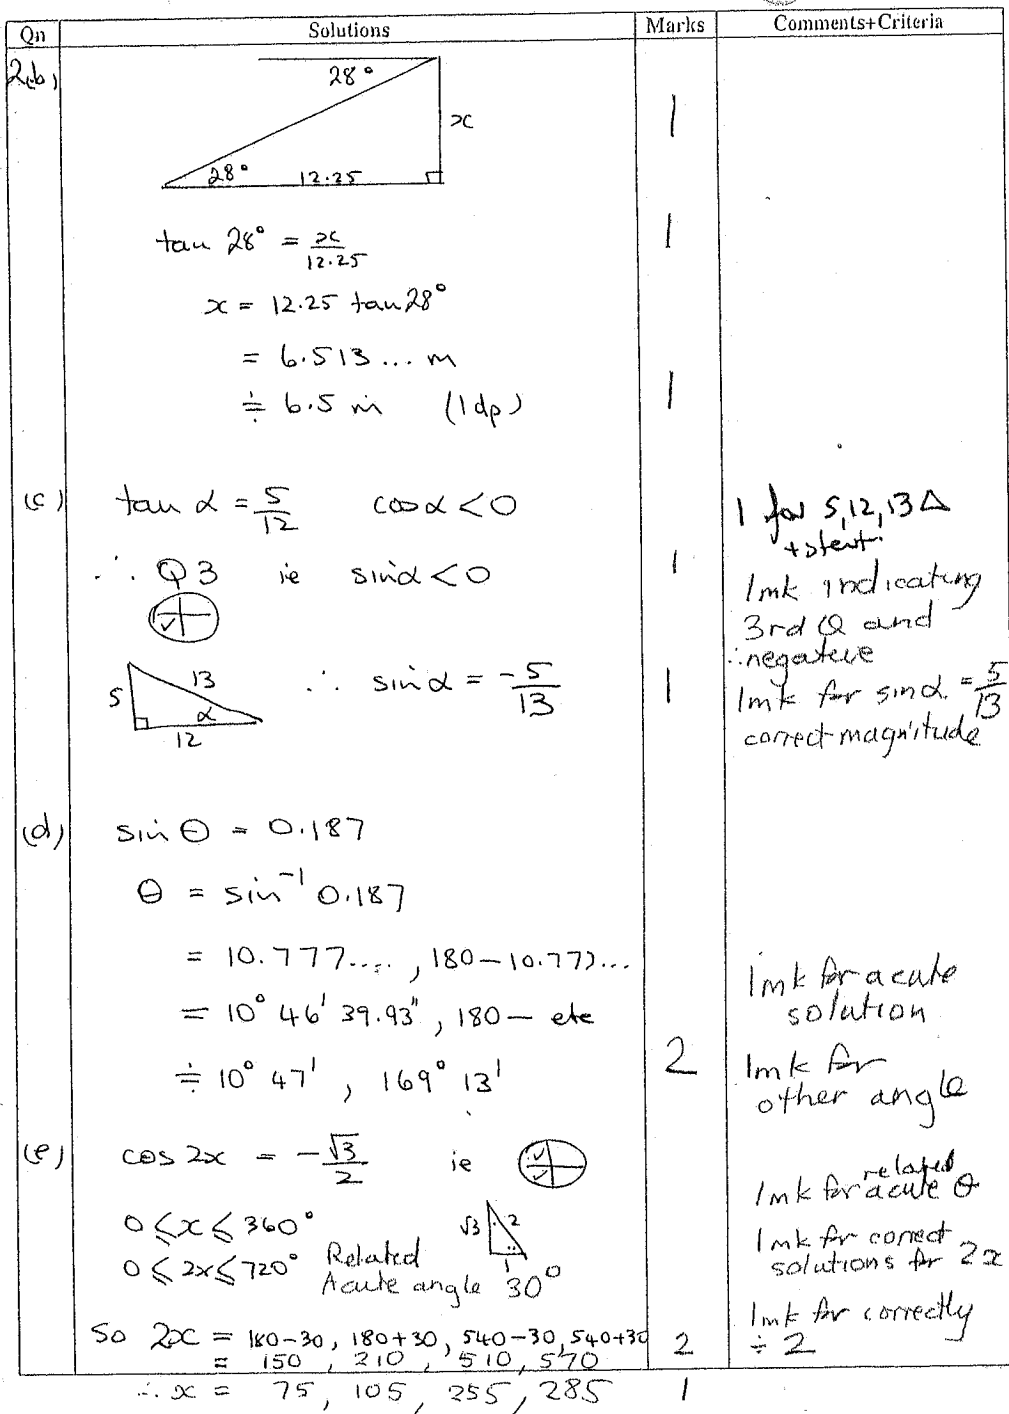 Qn Solutions Marks Comments+Criteria
2(b)
28°
x
1
28° 12.25
tan 28° = x/12.25
1
x = 12.25 tan 28°
= 6.513... m
≑ 6.5 m (1dp)
1
(c) tan α = 5/12 cos α < 0
1 for 5,12,13 Δ
∴ Q3 ie sin α < 0
1
1mk indicating
3rd Q and
∴ negative
5 13 α 12
∴ sin α = -5/13
1
1mk for sin α = 5/13
correct magnitude
(d) sin θ = 0.187
θ = sin⁻¹ 0.187
= 10.777...., 180 – 10.777...
= 10° 46' 39.93", 180 – etc
≑ 10° 47', 169° 13'
2
1mk for acute
solution
1mk for
other angle
(e) cos 2x = -√3/2 ie
0 ≤ x ≤ 360°
√3 2 1
0 ≤ 2x ≤ 720° Related
Acute angle 30°
1mk for related acute θ
1mk for correct
solutions for 2x
So 2x = 180-30, 180+30, 540-30, 540+30
= 150, 210, 510, 570
2
1mk for correctly
÷ 2
∴ x = 75, 105, 255, 285
1